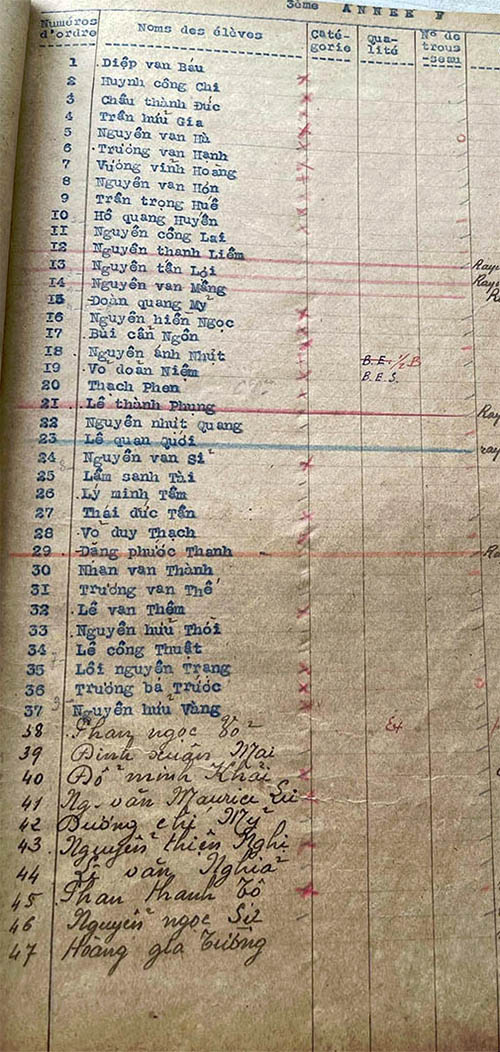 3ème ANNEE F
Numéros d'ordre Noms des élèves Caté-gorie Qua-lité N° de trous-seau
1 Diệp van Báu
2 Huynh công Chi
3 Châu thành Đức
4 Trần hưu Gia
5 Nguyễn van Hù
6 Trương van Hạnh
7 Vương vinh Hoàng
8 Nguyễn van Hón
9 Trần trọng Huê
10 Hồ quang Huyền
11 Nguyễn công Lai
12 Nguyễn thanh Liêm
13 Nguyễn tấn Lợi
14 Nguyễn van Mảng
15 Đoàn quang Mỹ
16 Nguyễn hiền Ngọc
17 Bùi cần Ngôn
18 Nguyễn ánh Nhựt B.E. 1/2 B
19 Vỏ doàn Niệm B.E.S.
20 Thạch Phen
21 Lê thành Phụng
22 Nguyễn nhựt Quang
23 Lê quan Quới
24 Nguyễn van Sỉ
25 Lâm sanh Tài
26 Lý minh Tâm
27 Thái đức Tấn
28 Vỏ duy Thạch
29 Đặng phước Thanh
30 Nhan van Thành
31 Trương van Thế
32 Lê van Thêm
33 Nguyễn hưu Thói
34 Lê công Thuật
35 Lôi nguyên Trang
36 Trương bá Trước
37 Nguyễn hưu Vàng
38 Phan ngọc Ex
39 Đinh xuân Mai
40 Đổ minh Khải
41 Ng. văn Maurice
42 Dương chí Mỹ
43 Nguyễn thiện Nghi
44 Lê văn Nghĩa
45 Phan thanh Tô
46 Nguyễn ngọc
47 Hoàng gia Tường